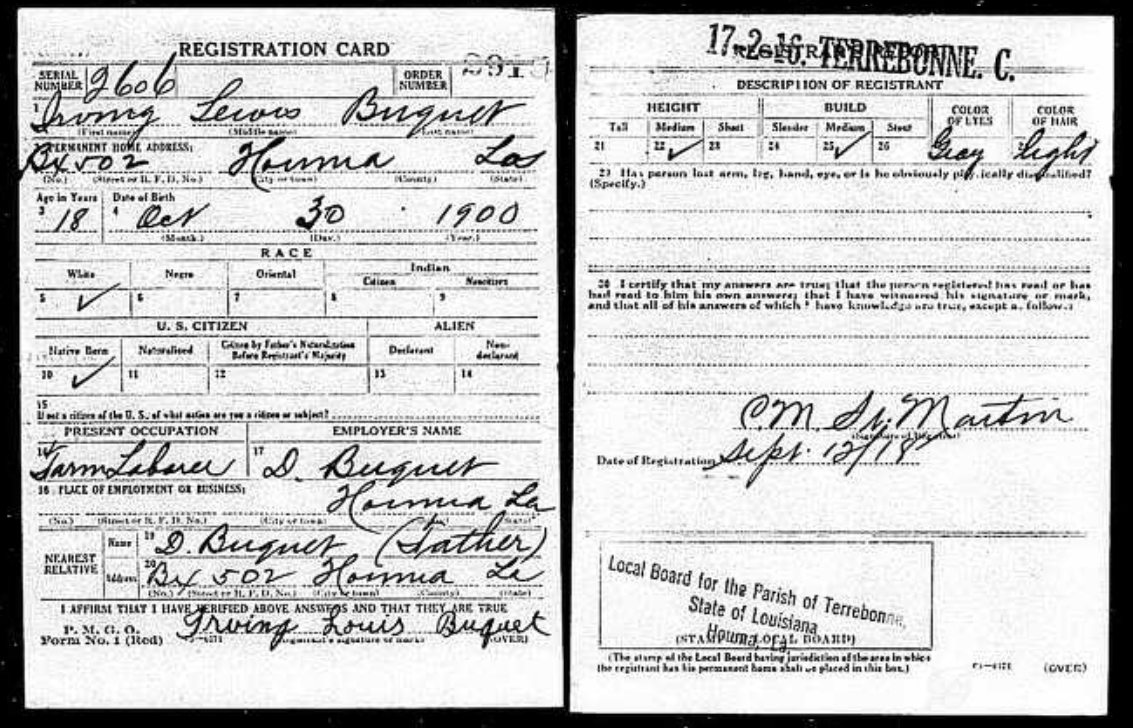 REGISTRATION CARD
SERIAL NUMBER 2606 ORDER NUMBER
1 Irving Lewis Buquet
(First name) (Middle name) (Last name)
2 PERMANENT HOME ADDRESS:
Bx 502 Houma Las
(No.) (Street or R. F. D. No.) (City or town) (County) (State)
Age in Years Date of Birth
3 18 4 Oct 30 1900
(Month.) (Day.) (Year.)
RACE
White Negro Oriental Indian
Citizen Noncitizen
5 ✓ 6 7 8 9
U. S. CITIZEN ALIEN
Native Born Naturalized Citizen by Father's Naturalization Before Registrant's Majority Declarant Non-declarant
10 ✓ 11 12 13 14
15
If not a citizen of the U. S., of what nation are you a citizen or subject?
PRESENT OCCUPATION EMPLOYER'S NAME
16 Farm Laborer 17 D. Buquet
18 PLACE OF EMPLOYMENT OR BUSINESS:
Houma La
(No.) (Street or R. F. D. No.) (City or town) (State)
NEAREST RELATIVE
Name 19 D. Buquet (Father)
Address 20 Bx 502 Houma La
(No.) (Street or R. F. D. No.) (City or town) (County) (State)
I AFFIRM THAT I HAVE VERIFIED ABOVE ANSWERS AND THAT THEY ARE TRUE
P. M. G. O.
Form No. 1 (Red) Irving Louis Buquet
(Registrant's signature or mark) (OVER)
17-2-16. TERREBONNE. C.
REGISTRAR'S REPORT
DESCRIPTION OF REGISTRANT
HEIGHT BUILD COLOR OF EYES COLOR OF HAIR
Tall Medium Short Slender Medium Stout
21 22 ✓ 23 24 25 ✓ 26 Gray light
29 Has person lost arm, leg, hand, eye, or is he obviously physically disqualified?
(Specify.)
30 I certify that my answers are true; that the person registered has read or has
had read to him his own answers; that I have witnessed his signature or mark,
and that all of his answers of which I have knowledge are true, except as follows:
C.M. St. Martin
(Signature of Registrar)
Date of Registration Sept. 12/18
Local Board for the Parish of Terrebonne,
State of Louisiana
Houma, La.
(STAMP OF LOCAL BOARD)
(The stamp of the Local Board having jurisdiction of the area in which
the registrant has his permanent home shall be placed in this box.)
(OVER)